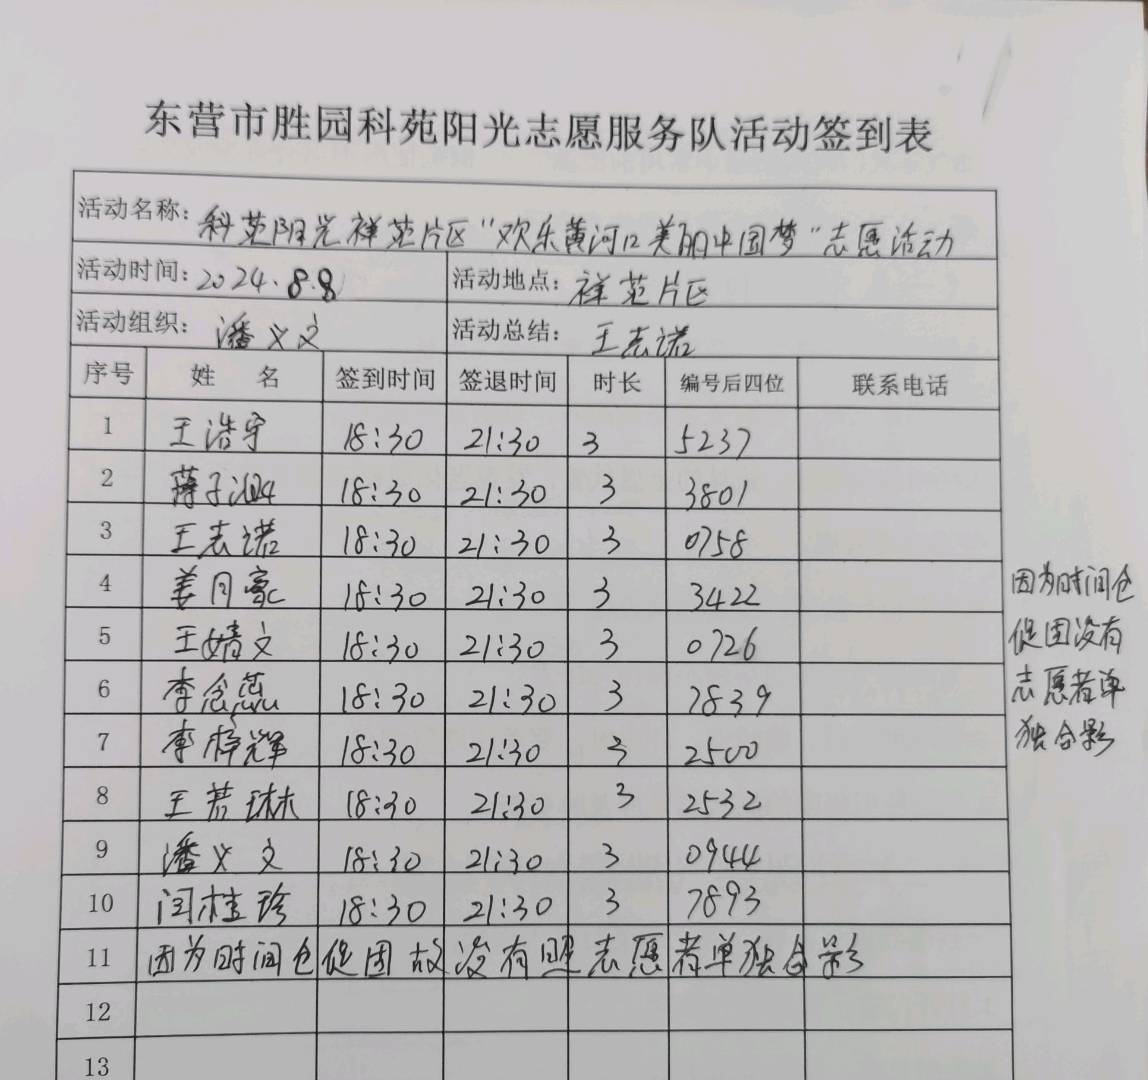 东营市胜园科苑阳光志愿服务队活动签到表
活动名称：科苑阳光祥苑片区“欢乐黄河口美丽中国梦”志愿活动
活动时间：2024.8.8 活动地点：祥苑片区
活动组织：潘义文 活动总结：王志诺
序号 姓 名 签到时间 签退时间 时长 编号后四位 联系电话
1 王浩宇 18:30 21:30 3 5237
2 薄子 18:30 21:30 3 3801
3 王志诺 18:30 21:30 3 0758
4 姜月豪 18:30 21:30 3 3422
5 王婧文 18:30 21:30 3 0726
6 李念 18:30 21:30 3 7839
7 李梓辉 18:30 21:30 3 2500
8 王若琳 18:30 21:30 3 2532
9 潘义文 18:30 21:30 3 0944
10 闫桂珍 18:30 21:30 3 7893
11 因为时间仓促固故没有照志愿者单独合影
12
13
因为时间仓
促固没有
志愿者单
独合影